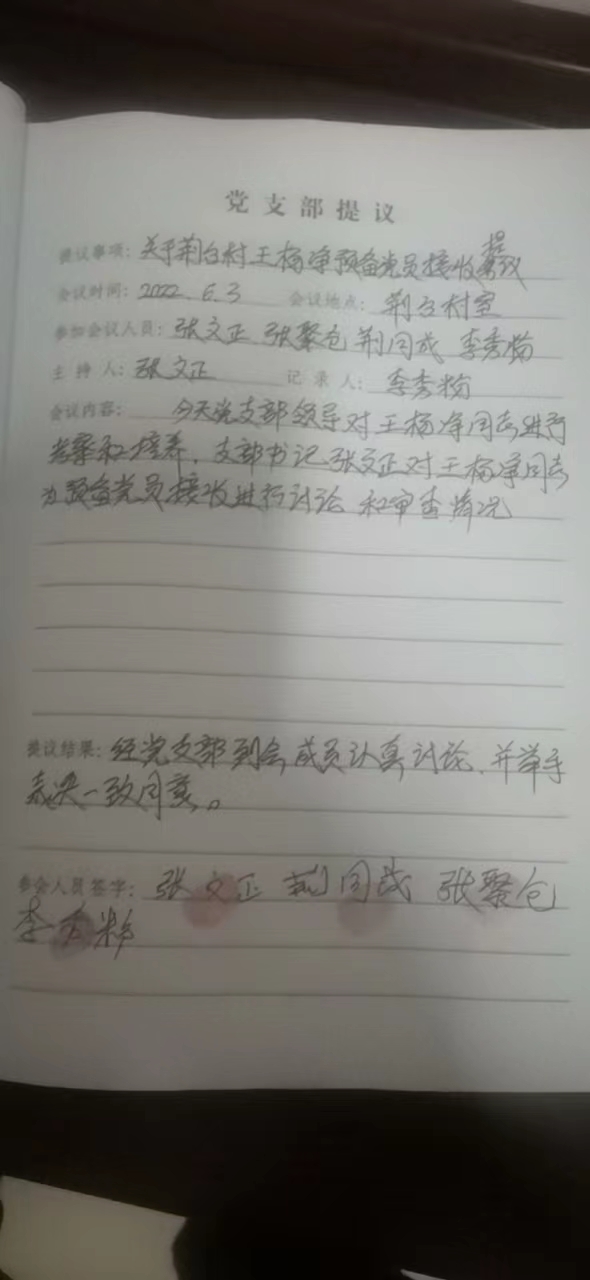 党支部提议
提议事项：关于荆台村王杨净预备党员接收提议
会议时间：2022.6.3 会议地点：荆台村室
参加会议人员：张文正 张聚仓 荆同成 李秀粉
主持人：张文正 记录人：李秀粉
会议内容：今天党支部领导对王杨净同志进行
考察和培养，支部书记张文正对王杨净同志
为预备党员接收进行讨论和审查情况
提议结果：经党支部到会成员认真讨论，并举手
表决一致同意。
参会人员签字：张文正 荆同成 张聚仓
李秀粉